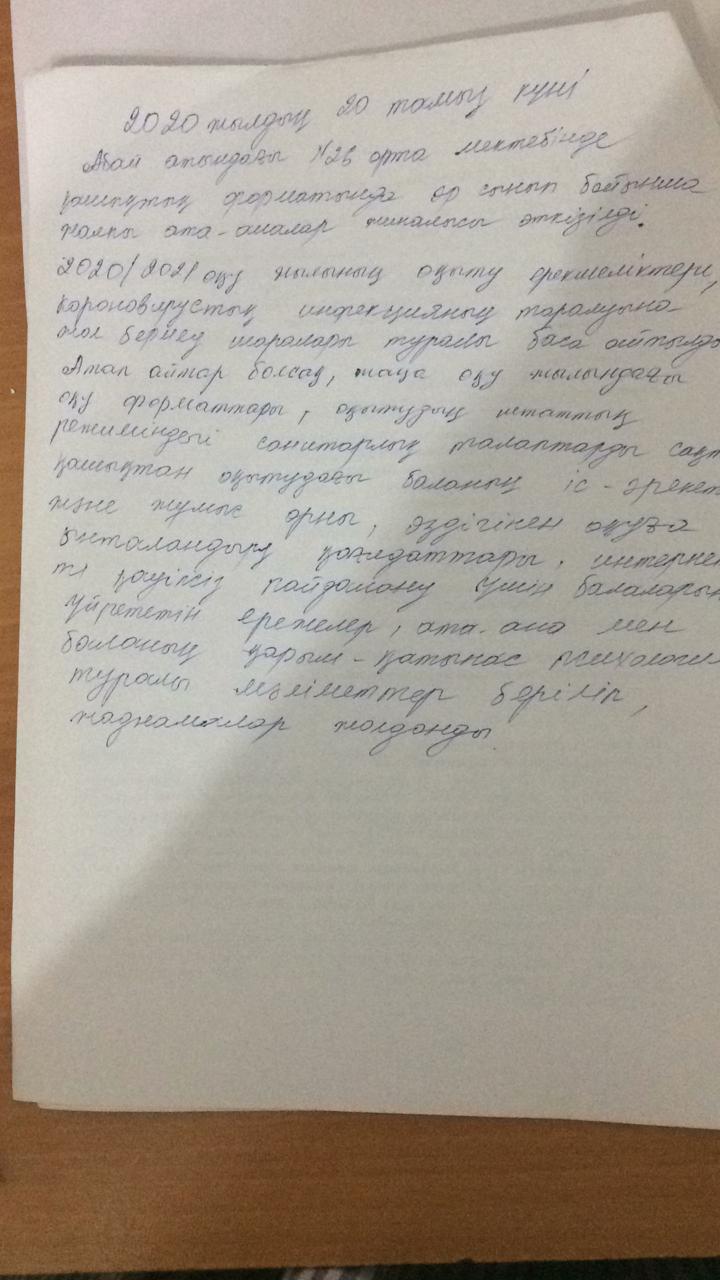 2020 жылдың 20 тамыз күні
Абай атындағы №26 орта мектебінде
қашықтық форматында әр сынып бойынша
жалпы ата-аналар жиналысы өткізілді.
2020/2021 оқу жылының оқыту ерекшеліктері,
короновирустық инфекцияның таралуына
жол бермеу шаралары туралы баса айтылды
Атап айтар болсақ, жаңа оқу жылындағы
оқу форматтары, оқытудың штаттық
режиміндегі санитарлық талаптарды сақт
қашықтан оқытудағы баланың іс-әрекет
және жұмыс орны, өздігінен оқуға
ынталандыру қағидаттары, интерне
ті қауіпсіз пайдалану үшін балаларын
үйрететін ережелер, ата-ана мен
баланың қарым-қатынас психологи
туралы мәліметтер беріліп,
жаднамалар жолданды.